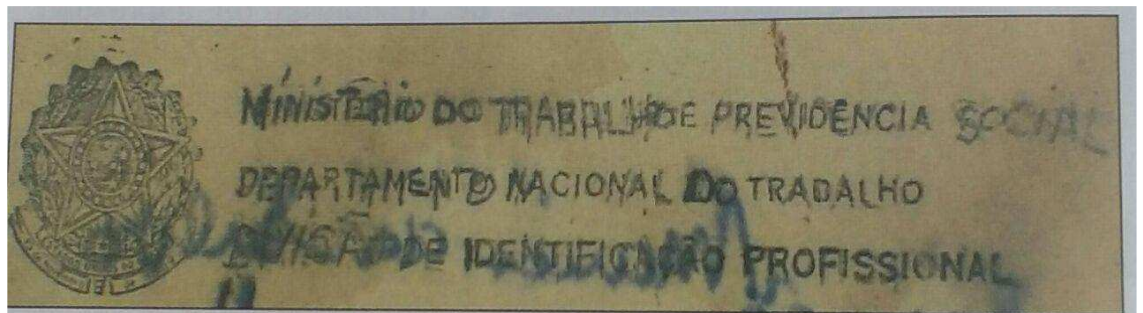 MINISTÉRIO DO TRABALHO E PREVIDENCIA SOCIAL
DEPARTAMENTO NACIONAL DO TRABALHO
DIVISÃO DE IDENTIFICAÇÃO PROFISSIONAL